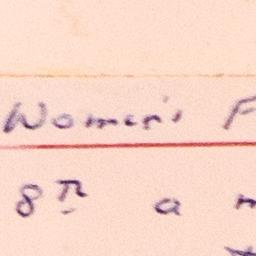 Women's F
8th a